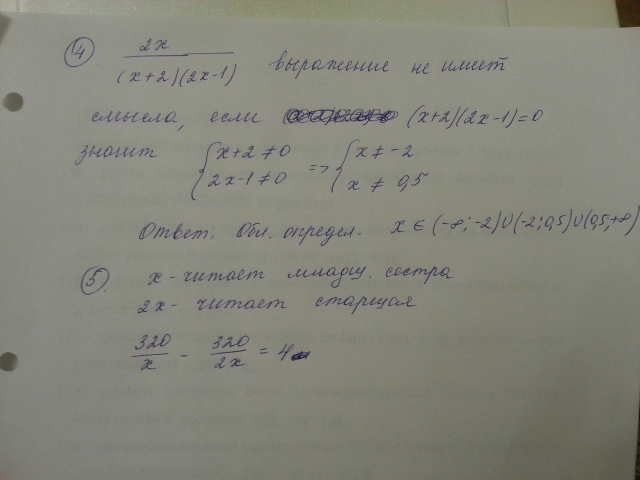 ④ 2x / (x+2)(2x-1) выражение не имеет
смысла, если (x+2)(2x-1)=0
значит { x+2≠0 => { x≠-2
2x-1≠0 x≠0,5
Ответ: Обл. определ. x∈(-∞;-2)∪(-2;0,5)∪(0,5;+∞)
⑤ x - читает младш. сестра
2x - читает старшая
320/x - 320/2x = 4